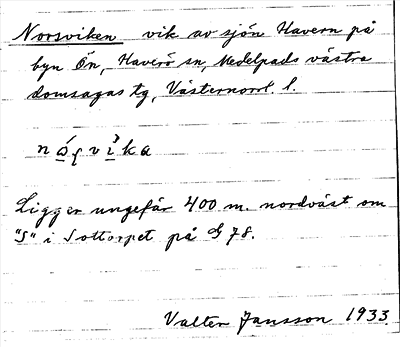 Norsviken vik av sjön Havern på
byn Ön, Haverö sn, Medelpads västra
domsagas tg, Västernorrl. l.
Ligger ungefär 400 m. nordväst om
"S" i Sottorpet på G 78.
Valter Jansson 1933